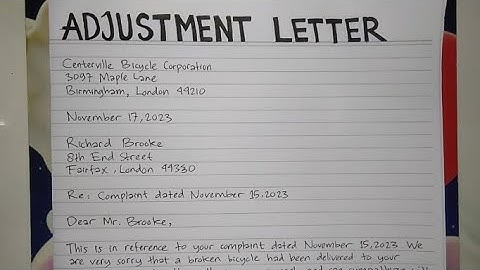 ADJUSTMENT LETTER
Centerville Bicycle Corporation
3097 Maple Lane
Birmingham, London 49210
November 17, 2023
Richard Brooke
8th End Street
Fairfax, London 49330
Re: Complaint dated November 15, 2023
Dear Mr. Brooke,
This is in reference to your complaint dated November 15, 2023. We
are very sorry that a broken bicycle had been delivered to your